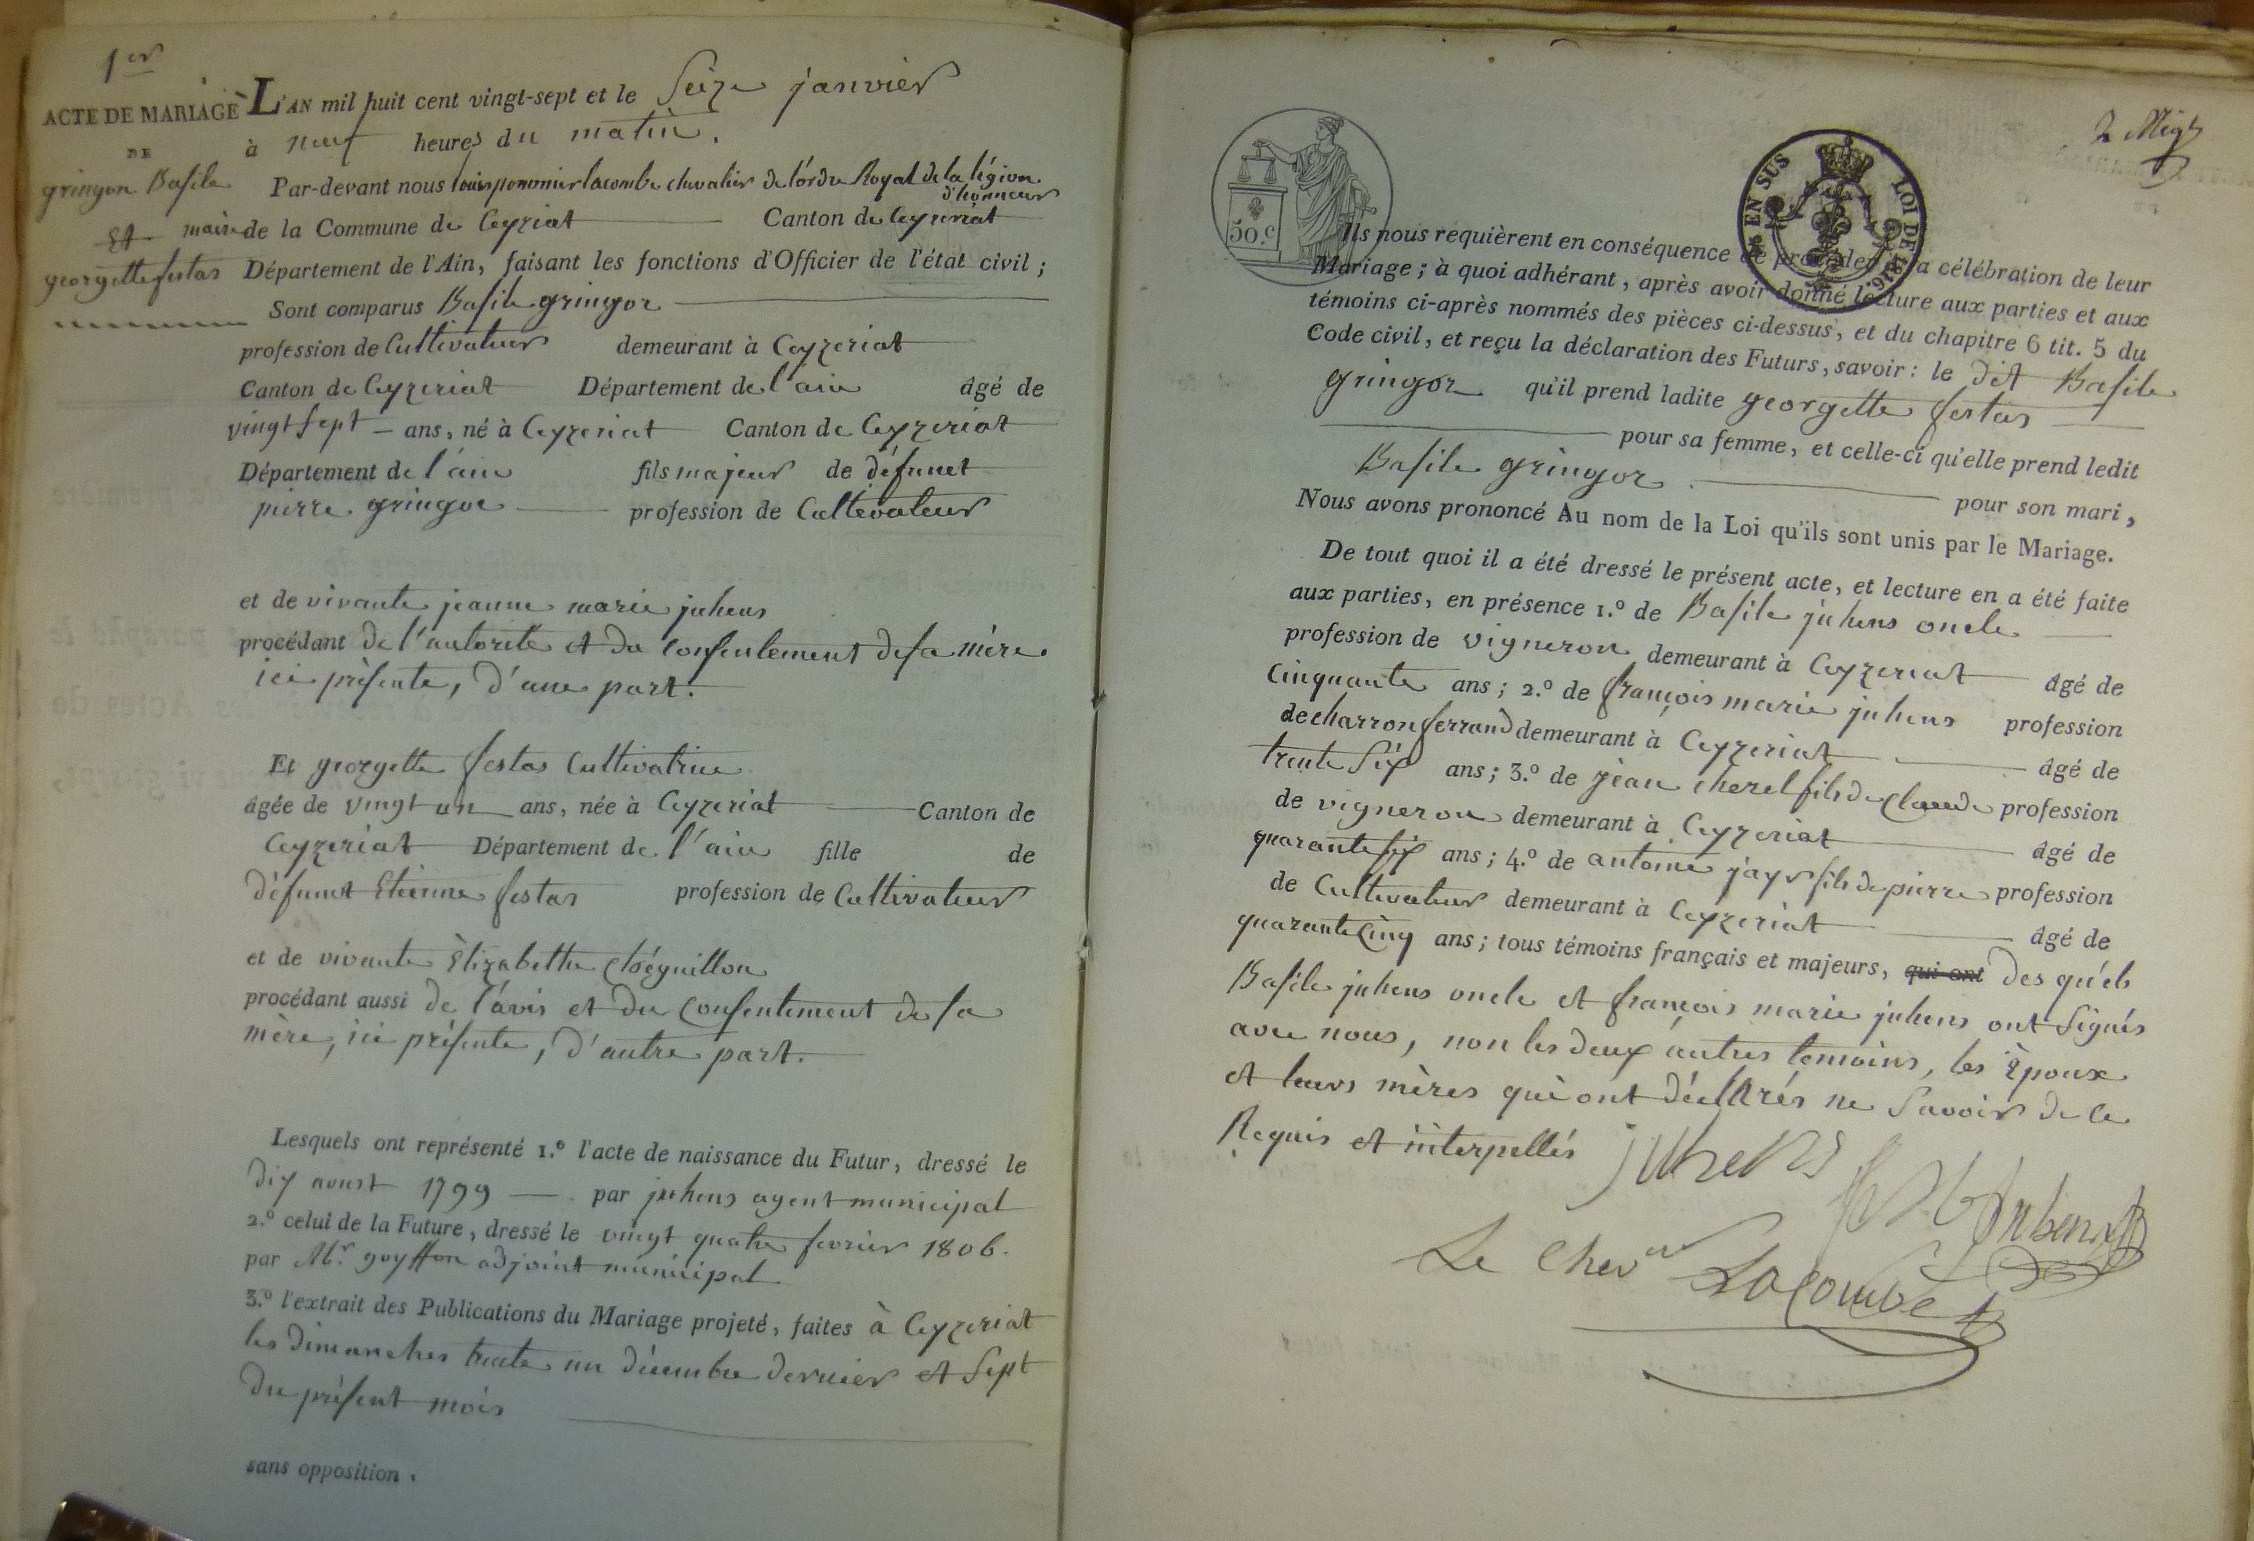 1er
ACTE DE MARIAGE
DE
gringon Basile
Et
georgette festas
L'AN mil huit cent vingt-sept et le Seize janvier
à neuf heures du matin,
Par-devant nous louis pommier lacombe chevalier de l'órdre Royal de la légion
d'honneur
maire de la Commune de Ceyzériat Canton de Ceyzeriat
Département de l'Ain, faisant les fonctions d'Officier de l'état civil ;
Sont comparus Basile gringoz
profession de Cultivateur demeurant à Ceyzeriat
Canton de Ceyzeriat Département de l'ain âgé de
vingt sept ans, né à Ceyzeriat Canton de Ceyzeriat
Département de l'ain fils majeur de défunct
pierre gringoz profession de Cultivateur
et de vivante jeanne marie juhens
procédant de l'autorité et du consentement de sa mère
ici présente, d'une part.
Et georgette festas Cultivatrice
âgée de vingt un ans, née à Ceyzeriat Canton de
Ceyzeriat Département de l'ain fille de
défunct Etienne festas profession de Cultivateur
et de vivante Èlizabethe
procédant aussi de l'ávis et du Consentement de sa
mère, ici présente, d'autre part.
Lesquels ont représenté 1.º l'acte de naissance du Futur, dressé le
dix aoust 1799 par juhens agent municipal
2.º celui de la Future, dressé le vingt quatre fevrier 1806.
par Mr. goyffon adjoint municipal
3.º l'extrait des Publications du Mariage projeté, faites à Ceyzeriat
les dimanches trente un décembre dernier et Sept
du présent mois
sans opposition.
50.c
EN SUS
LOI DE 1816.
Ils nous requièrent en conséquence de procéder à la célébration de leur
Mariage ; à quoi adhérant, après avoir donné lecture aux parties et aux
témoins ci-après nommés des pièces ci-dessus, et du chapitre 6 tit. 5 du
Code civil, et reçu la déclaration des Futurs, savoir : le dit Basile
gringoz qu'il prend ladite georgette festas
pour sa femme, et celle-ci qu'elle prend ledit
Basile gringoz pour son mari,
Nous avons prononcé Au nom de la Loi qu'ils sont unis par le Mariage.
De tout quoi il a été dressé le présent acte, et lecture en a été faite
aux parties, en présence 1.º de Basile juhens oncle
profession de vigneron demeurant à Ceyzeriat âgé de
Cinquante ans ; 2.º de françois marie juhens profession
de charron ferrand demeurant à Ceyzeriat âgé de
trente Six ans ; 3.º de jean cherel fils de Claude profession
de vigneron demeurant à Ceyzeriat âgé de
quarante six ans ; 4.º de antoine jayr fils de pierre profession
de Cultivateur demeurant à Ceyzeriat âgé de
quarante Cinq ans ; tous témoins français et majeurs, qui ont des qu'els
Basile juhens oncle et françois marie juhens ont Signés
avec nous, non les deux autres temoins, les Èpoux
et leurs mères qui ont déclarés ne Savoir de ce
Requis et interpellés
juhens
juhens
Le Chever Lacombe